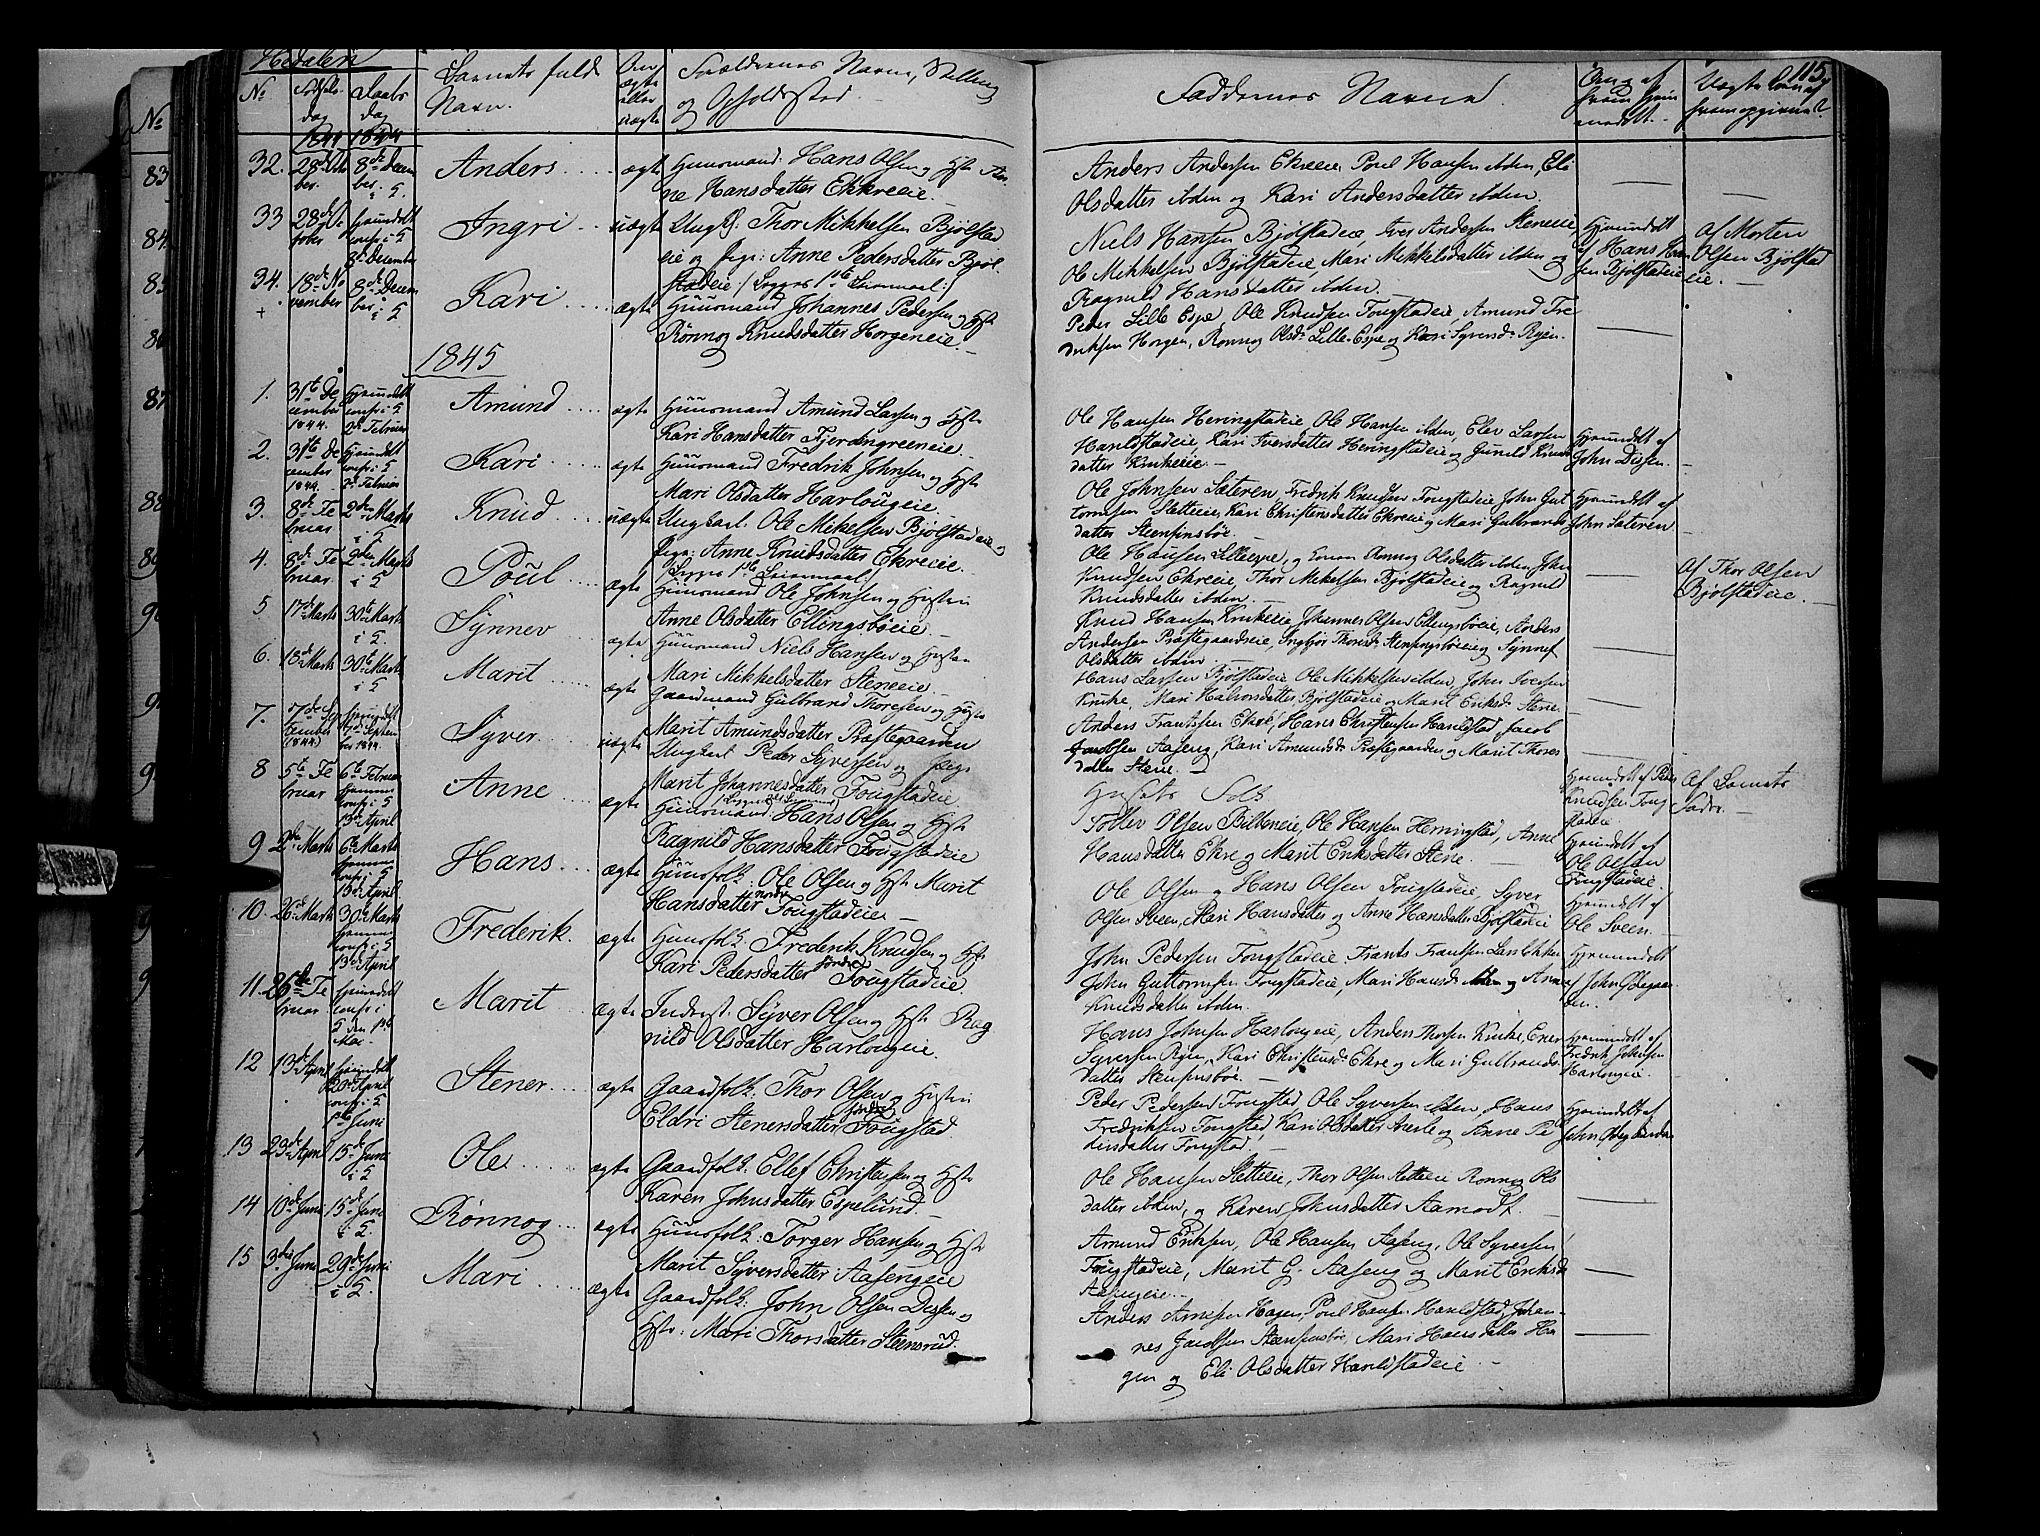 Hedalen
115.
No
Fødsels-
dag
Daabs
dag
Barnets fulde
Navn.
ægte
eller
uægte
Forældrenes Navne, Stilling
og Opholdssted
Faddernes Navne.
Om og af
hvem hjem
medøbt.
1844 1844
32.
28de
ber.
8de Decem
ber.
i S.
Anders
ægte
Huusmand: Hans Olsen og Hst
ne Hansdatter Ekreeie.
Anders Andersen Ekreeie, Poul Hansen ibden, Eli
Olsdatter ibden og Kari Andersdatter ibden.
33
28de
tober
hjemdøbt
conf: i S
8de December
Ingri
uægte
Ungk: Thor Mikkelsen Bjølstad
eie og Pige: Anne Pedersdatter Bjøl
stadeie /: Begges 1ste Leiermaal :/
Niels Hansen Bjølstadeie, Iver Andersen Steneeie
Ole Mikkelsen Bjølstadeie, Mari Mikkelsdatter ibden og
Ragnild Hansdatter ibden
hjemdøbt
af Hans Han
sen Bjølstadeie
Af Morten
Olsen Bjølstad
eie.
34.
18de No
vember
8de Decem
ber i S
Kari
ægte
Huusmand Johannes Pedersen og Hst
Rønnog Knudsdatter Horgeneie.
Peder Lille Espe, Ole Knudsen Fougstadeie, Amund Fre
driksen Horgen, Rønnog Olsd. Lille-Espe og Kari Syversd. Ryen.
1845
1.
31te De
cember
1844.
hjemdøbt
conf: i S
2de Februar
Amund
ægte
Huusmand Amund Larsen og Hst
Kari Hansdatter Fjerdngreeneie.
Ole Hansen Heringstadeie, Ole Hansen ibden, Elev Larsen
Haraldstadeie, Kari Iversdatter Heringstadeie og Gunild Knuds
datter Krukeeie.
hjemdøbt af
John Dissen.
2.
31te De
cember
1844.
hjemdøbt
conf: i S
2de Februar
Kari
ægte
Huusmand Fredrik Johnsen og Hst
Mari Olsdatter Harlougeie.
Ole Johnsen Sæteren, Fredrik Knudsen Fougstadeie, John Gut
tormsen Sletteeie, Kari Christensdatter Ekreeie og Mari Gulbrands
datter Steensinsbøe.
hjemdøbt af
John Sæteren
3.
8de Fe
bruar
2den Marts
i S
Knud
uægte
Ungkarl Ole Mikkelsen Bjølstadeie og
Pige: Anne Knudsdatter Ekreeie.
Begges 1ste Leiermaal
Ole Hansen Lilleespe, og Konen Rønnog Olsdatter ibden, John
Knudsen Ekreeie, Thor Mikkelsen Bjølstadeie og Ragnild
Knudsdatter ibden.
Af Thor Olsen
Bjølstadeie.
4.
8de Fe
bruar
2den Marts
i S
Poul
ægte
Huusmand Ole Johnsen og Hustru
Anne Olsdatter Ellingsbøeie.
Knud Hansen Krukeeie, Johannes Olsen Ellingsbøeie, Anders
Andersen Præstegaardseie, Ingbjør Thorsd. Stensingsbøeie og Synnef
Olsdatter ibden.
5
17de Marts
30te Marts
i S
Synnev
ægte
Huusmand Niels Hansen og Hustru
Mari Mikkelsdatter Steneeie.
Hans Larsen Bjølstadeie, Ole Mikkelsen ibden, John Iversen
Kruke, Mari Halvorsdatter Bjølstadeie og Marit Eriksd. Stene.
6.
18de Marts
30te Marts
i S
Marit
ægte
Gaardmand Gulbrand Thoresen og Hustru
Marit Amundsdatter Præstegaarden
Anders Frantsen Ekre, Hans Christensen Haraldstad, Jacob
Jacobsen Aaseng, Kari Amundsd. Præstegaarden og Marit Thores
datter Stene.
7.
7de Sep
tember
(1844.)
hjemdøbt
Septem
ber 1844.
Syver
uægte
Ungkarl Peder Syversen og Pige
Marit Johannesdatter Fougstadeie.
hjemdøbt af Peder
Knudsen Foug
stadeie.
Af Barnets
Fader.
8
5te Fe
bruar
6te Februar
hjemme
conf: i S
13de April
Anne
ægte
Huusmand: Hans Olsen og Hst
Ragnild Hansdatter Fougstadeie
Tollev Olsen Bilbeneie, Ole Hansen Herringstad, Anne
Hansdatter Ekre og Marit Eriksdatter Stene.
hjemdøbt af
Ole Olsen
Fougstadeie.
9
2den Marts
6te Marts
hjemme
conf: i S
13de April
Hans
ægte
Huusfolk: Ole Olsen og Hst Marit
Hansdatter nordre Fougstadeie
Ole Olsen og Hans Olsen Fougstadeie, Syver
Olsen Sveen, Mari Hansdatter og Anne Hansdatter Bjølstadeie
hjemdøbt af
Ole Sveen.
10.
26de Marts
30te Marts
hjemme
conf: i S
13de April
Frederik.
ægte
Huusfolk: Frederik Knudsen og Hst
Kari Pedersdatter søndre Fougstadeie.
John Pedersen Fougstadeie, Frants Frantsen
John Guttormsen Fougstadeie, Mari Hansd. ibden og Anne
Knudsdatter ibden.
hjemdøbt
af John Ødegaar
den.
11.
26de Fe
bruar
hjemdøbt
conf: i
S den 1ste
Mai.
Marit
ægte
Inderst: Syver Olsen og Hst Rag
nild Olsdatter Harlougeie.
Hans Johnsen Harlougeie, Anders Thorsen Kruke, Ener
Syversen Ryen, Kari Christensd. Ekre og Mari Gulbrands-
datter Stensinsbøe.
hjemdøbt af
Fredrik Johnsen
Harlougeie.
12
13de April
hjemdøbt
20de April
conf: i S
1ste Juni
Stener
ægte
Gaardfolk: Thor Olsen og Hustru
Eldri Stenersdatter søndre Fougstad.
Peder Pedersen Fougstad, Ole Syversen ibden, Hans
Fredriksen Fougstad, Kari Olsdatter og Anne Pe
dersdatter Fougstad.
hjemdøbt af
John Ødegaarden
13
23de April
15de Juni
i S
Ole
ægte
Gaardfolk: Ellef Christensen og Hst
Karen Johnsdatter Espelund
Ole Hansen Sletteeie, Thor Olsen Sletteeie, Rønnog Ols
datter ibden, og Karen Johnsdatter Aamodt.
14
10de Juni
15de Juni
i S.
Rønnog
ægte
Huusfolk: Torger Hansen og Hst
Marit Syversdatter Aasengeie
Amund Eriksen, Ole Hansen Aaseng, Ole Syversen
Fougstadeie, Marit G. Aaseng og Marit Eriksd.
Aasengeie.
15
3die Juni
29de Juni
i S.
Mari
ægte
Gaardfolk: John Olsen Dissen og
Hst: Mari Thorsdatter Steensrud.
Anders Arnesen Hagen, Poul Hansen Haraldstad, Johan-
nes Jacobsen Stensinsbøe, Mari Hansdatter Ha
gen og Eli Olsdatter Haraldstadeie
No
83
84.
85
86
87
88
89
90